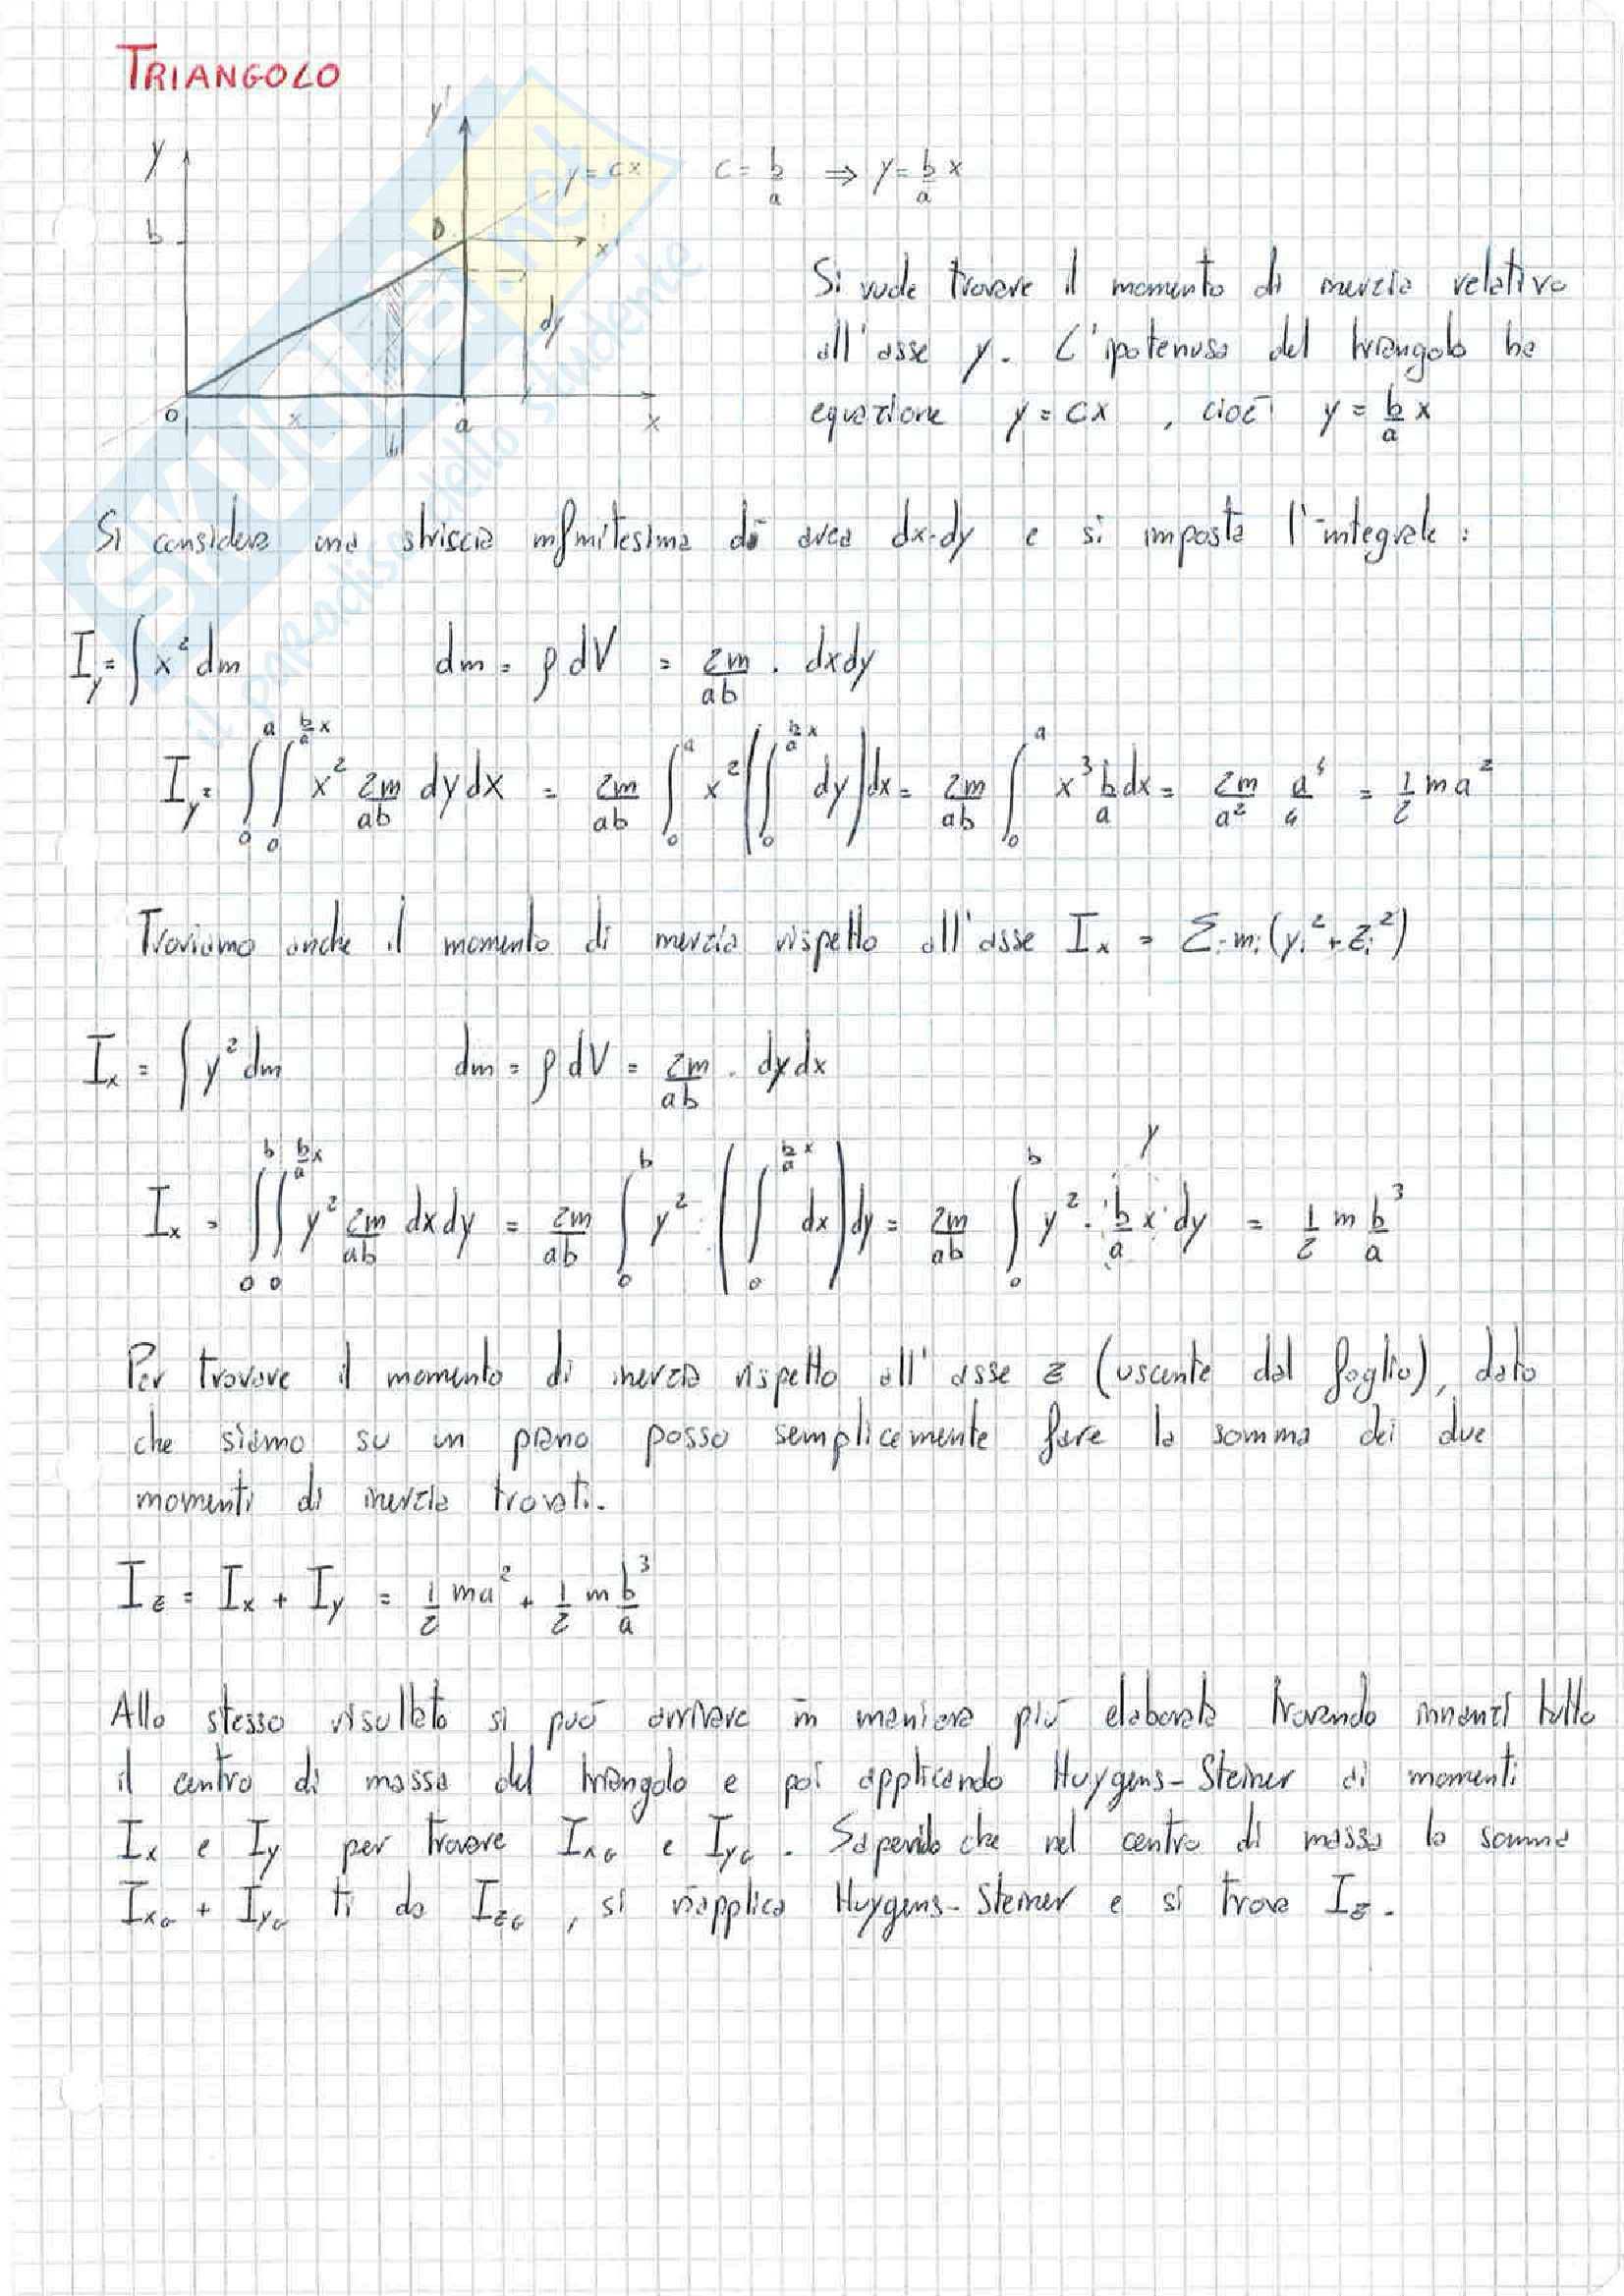 TRIANGOLO
y y'
b D y = cx c = b/a ⇒ y = b/a x
x'
dy
o x a x
Si vuole trovare il momento di inerzia relativo
all'asse y. L'ipotenusa del triangolo ha
equazione y = cx , cioè y = b/a x
Si considera una striscia infinitesima di area dx·dy e si imposta l'integrale :
I_y = ∫ x² dm dm = ρ dV = 2m/ab · dxdy
I_y = ∫₀^a ∫₀^(b/a x) x² 2m/ab dy dx = 2m/ab ∫₀^a x² (∫₀^(b/a x) dy) dx = 2m/ab ∫₀^a x³ b/a dx = 2m/a² a⁴/4 = 1/2 m a²
Troviamo anche il momento di inerzia rispetto all'asse I_x = Σ_i m_i (y_i² + z_i²)
I_x = ∫ y² dm dm = ρ dV = 2m/ab · dy dx
y
I_x = ∫₀^b ∫₀^(b/a x) y² 2m/ab dx dy = 2m/ab ∫₀^b y² · (∫₀^(b/a x) dx) dy = 2m/ab ∫₀^b y² · b/a x dy = 1/2 m b³/a
Per trovare il momento di inerzia rispetto all'asse z (uscente dal foglio), dato
che siamo su un piano posso semplicemente fare la somma dei due
momenti di inerzia trovati.
I_z = I_x + I_y = 1/2 ma² + 1/2 m b³/a
Allo stesso risultato si può arrivare in maniera più elaborata trovando innanzi tutto
il centro di massa del triangolo e poi applicando Huygens-Steiner ai momenti
I_x e I_y per trovare I_xG e I_yG . Sapendo che nel centro di massa la somma
I_xG + I_yG ti da I_zG , si riapplica Huygens-Steiner e si trova I_z .
SKUOLA.net
il paradiso dello studente